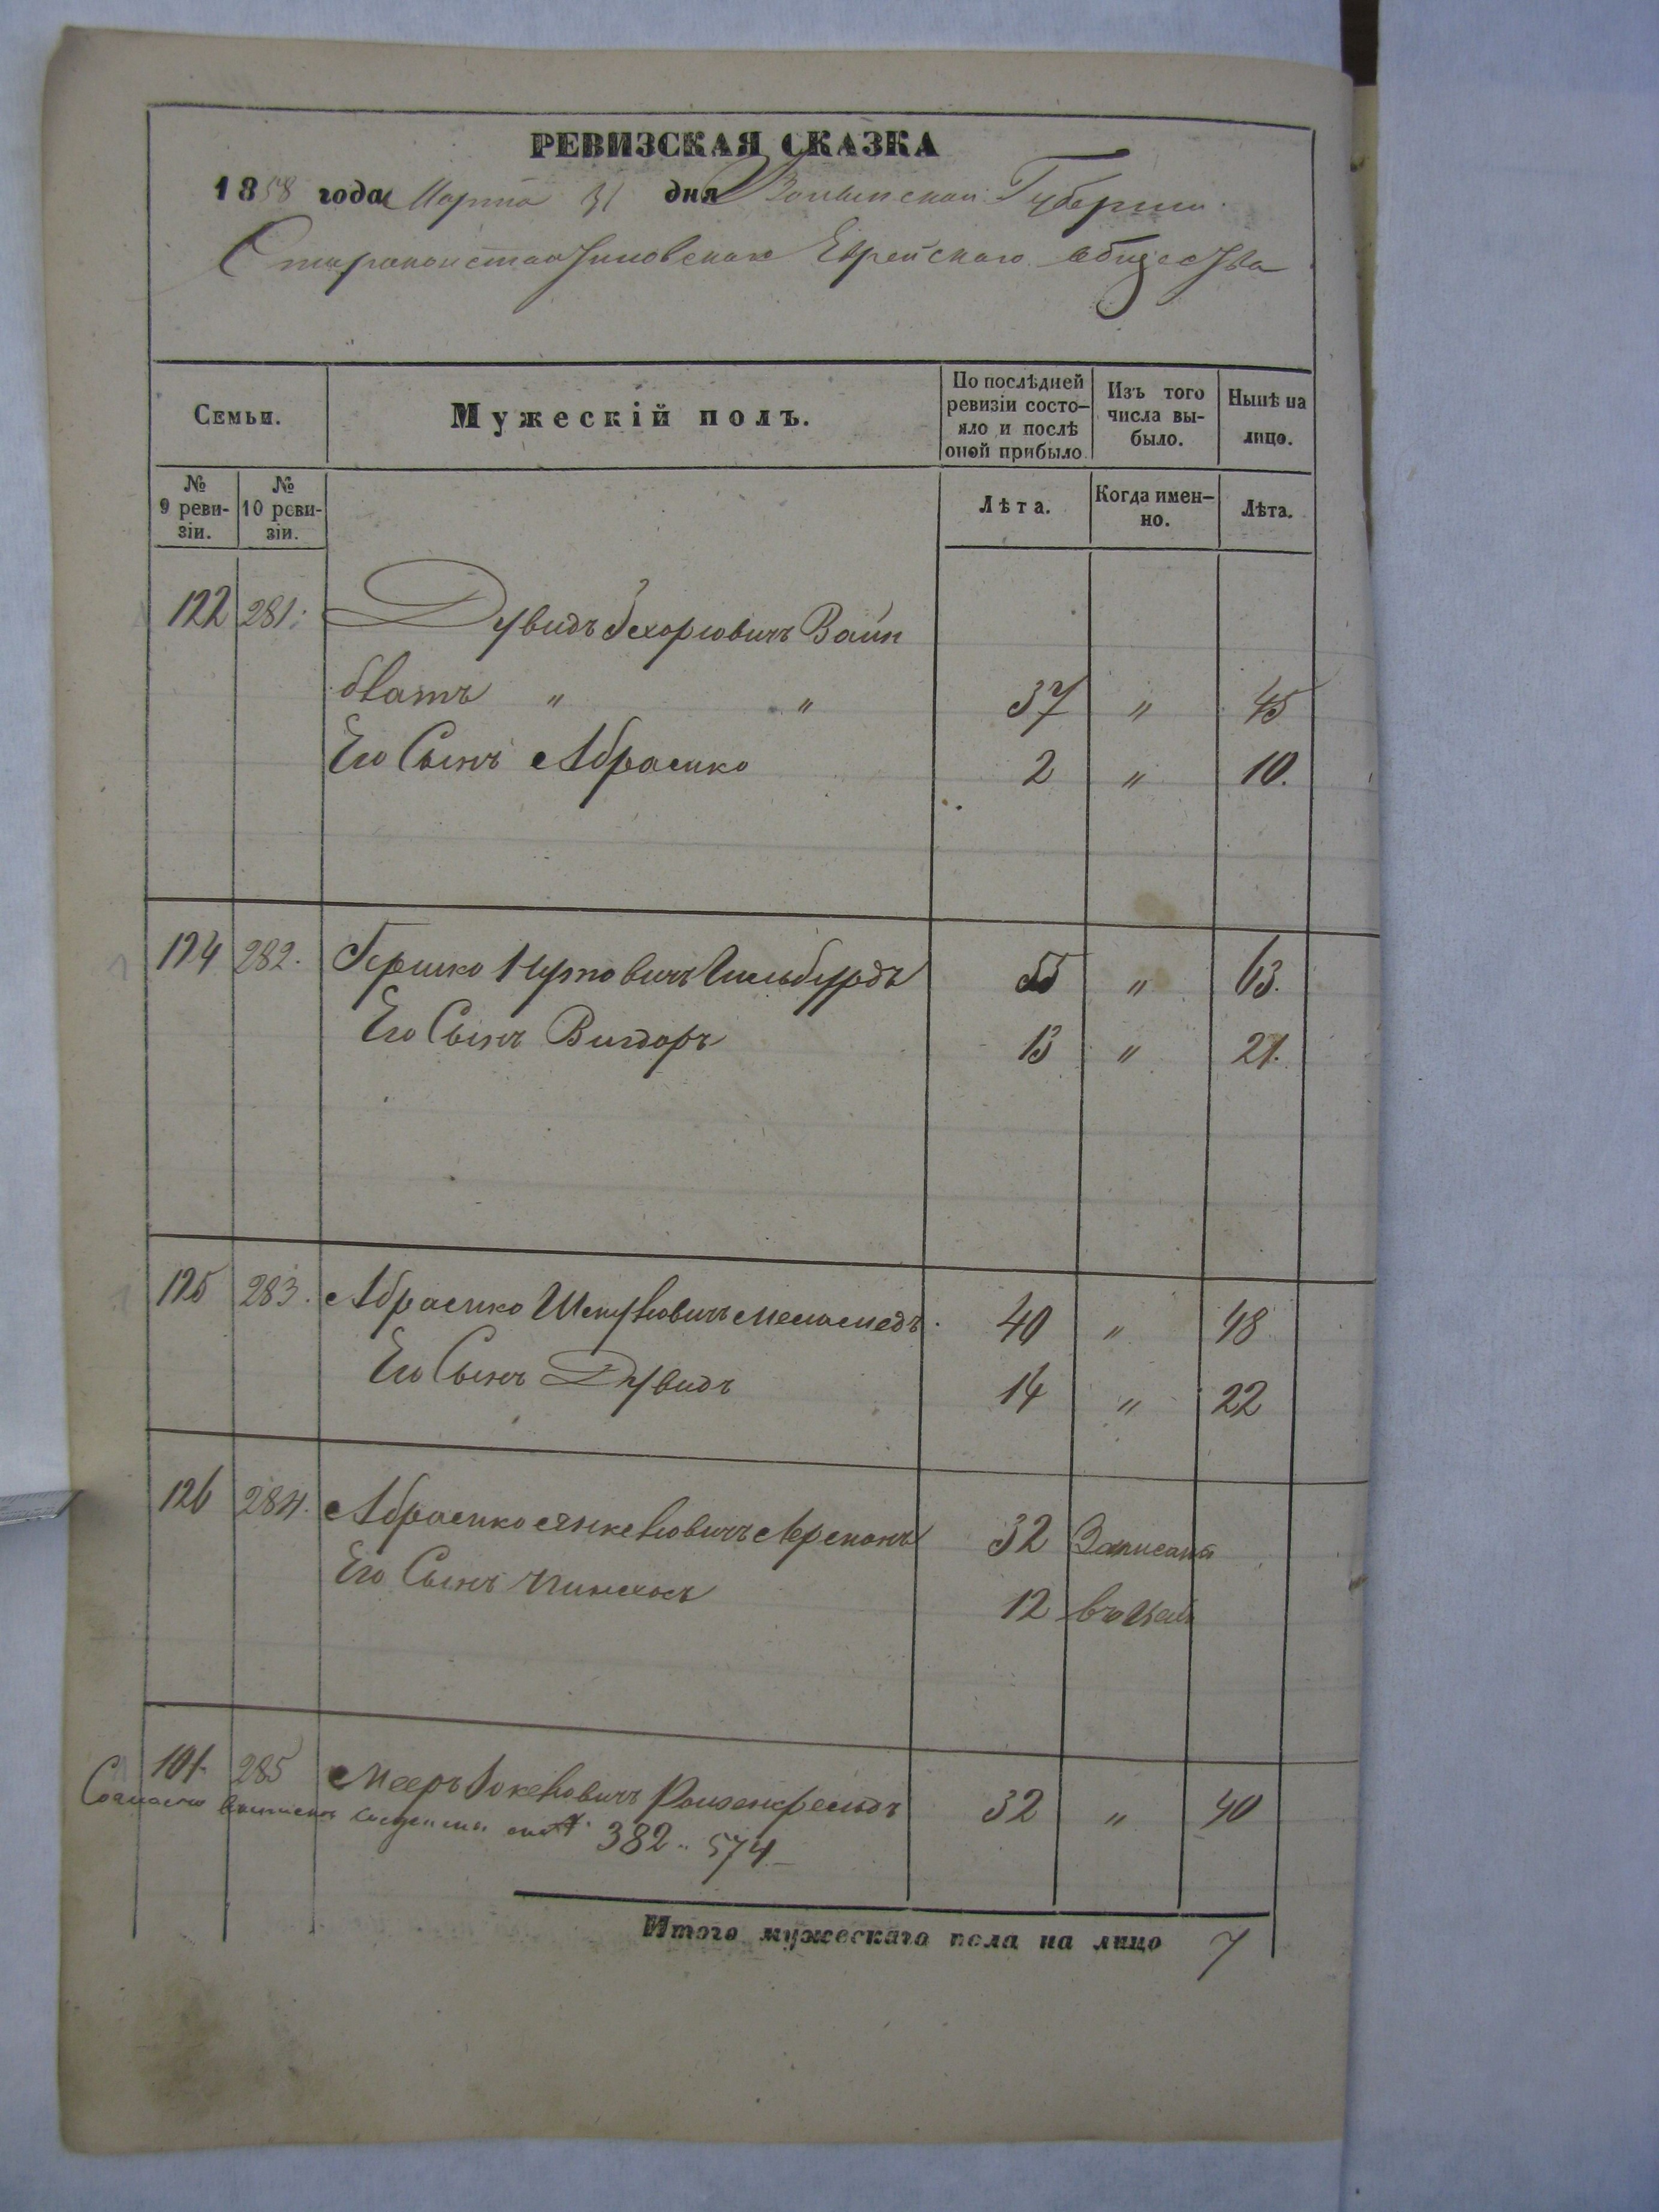 РЕВИЗСКАЯ СКАЗКА
1858 года Марта 31 дня Волынской Губернии
Староконстантиновскаго Еврейскаго общества
Семьи.
Мужескій полъ.
По послѣдней ревизіи состо-
яло и послѣ
оной прибыло.
Изъ того
числа вы-
было.
Нынѣ на
лицо.
№
9 реви-
зіи.
№
10 реви-
зіи.
Лѣта.
Когда имен-
но.
Лѣта.
122 281. Дувидъ Зехарiовичъ Вайн
блатъ " " 37 " 45
Его Сынъ Абрамко 2 " 10.
124 282. Гершко Нутовичъ Гильбурдъ 55 " 63.
Его Сынъ Вигдоръ 13 " 21.
125 283. Абрамко Шмулiовичъ Меламедъ. 40 " 48
Его Сынъ Дувидъ 14 " 22
126 284. Абрамко Янкелiовичъ 32 Записаны
Его Сынъ Пинхасъ 12
101. 285 Мееръ 32 " 40
Согласно 382.. 574
Итого мужескаго пола на лицо 7